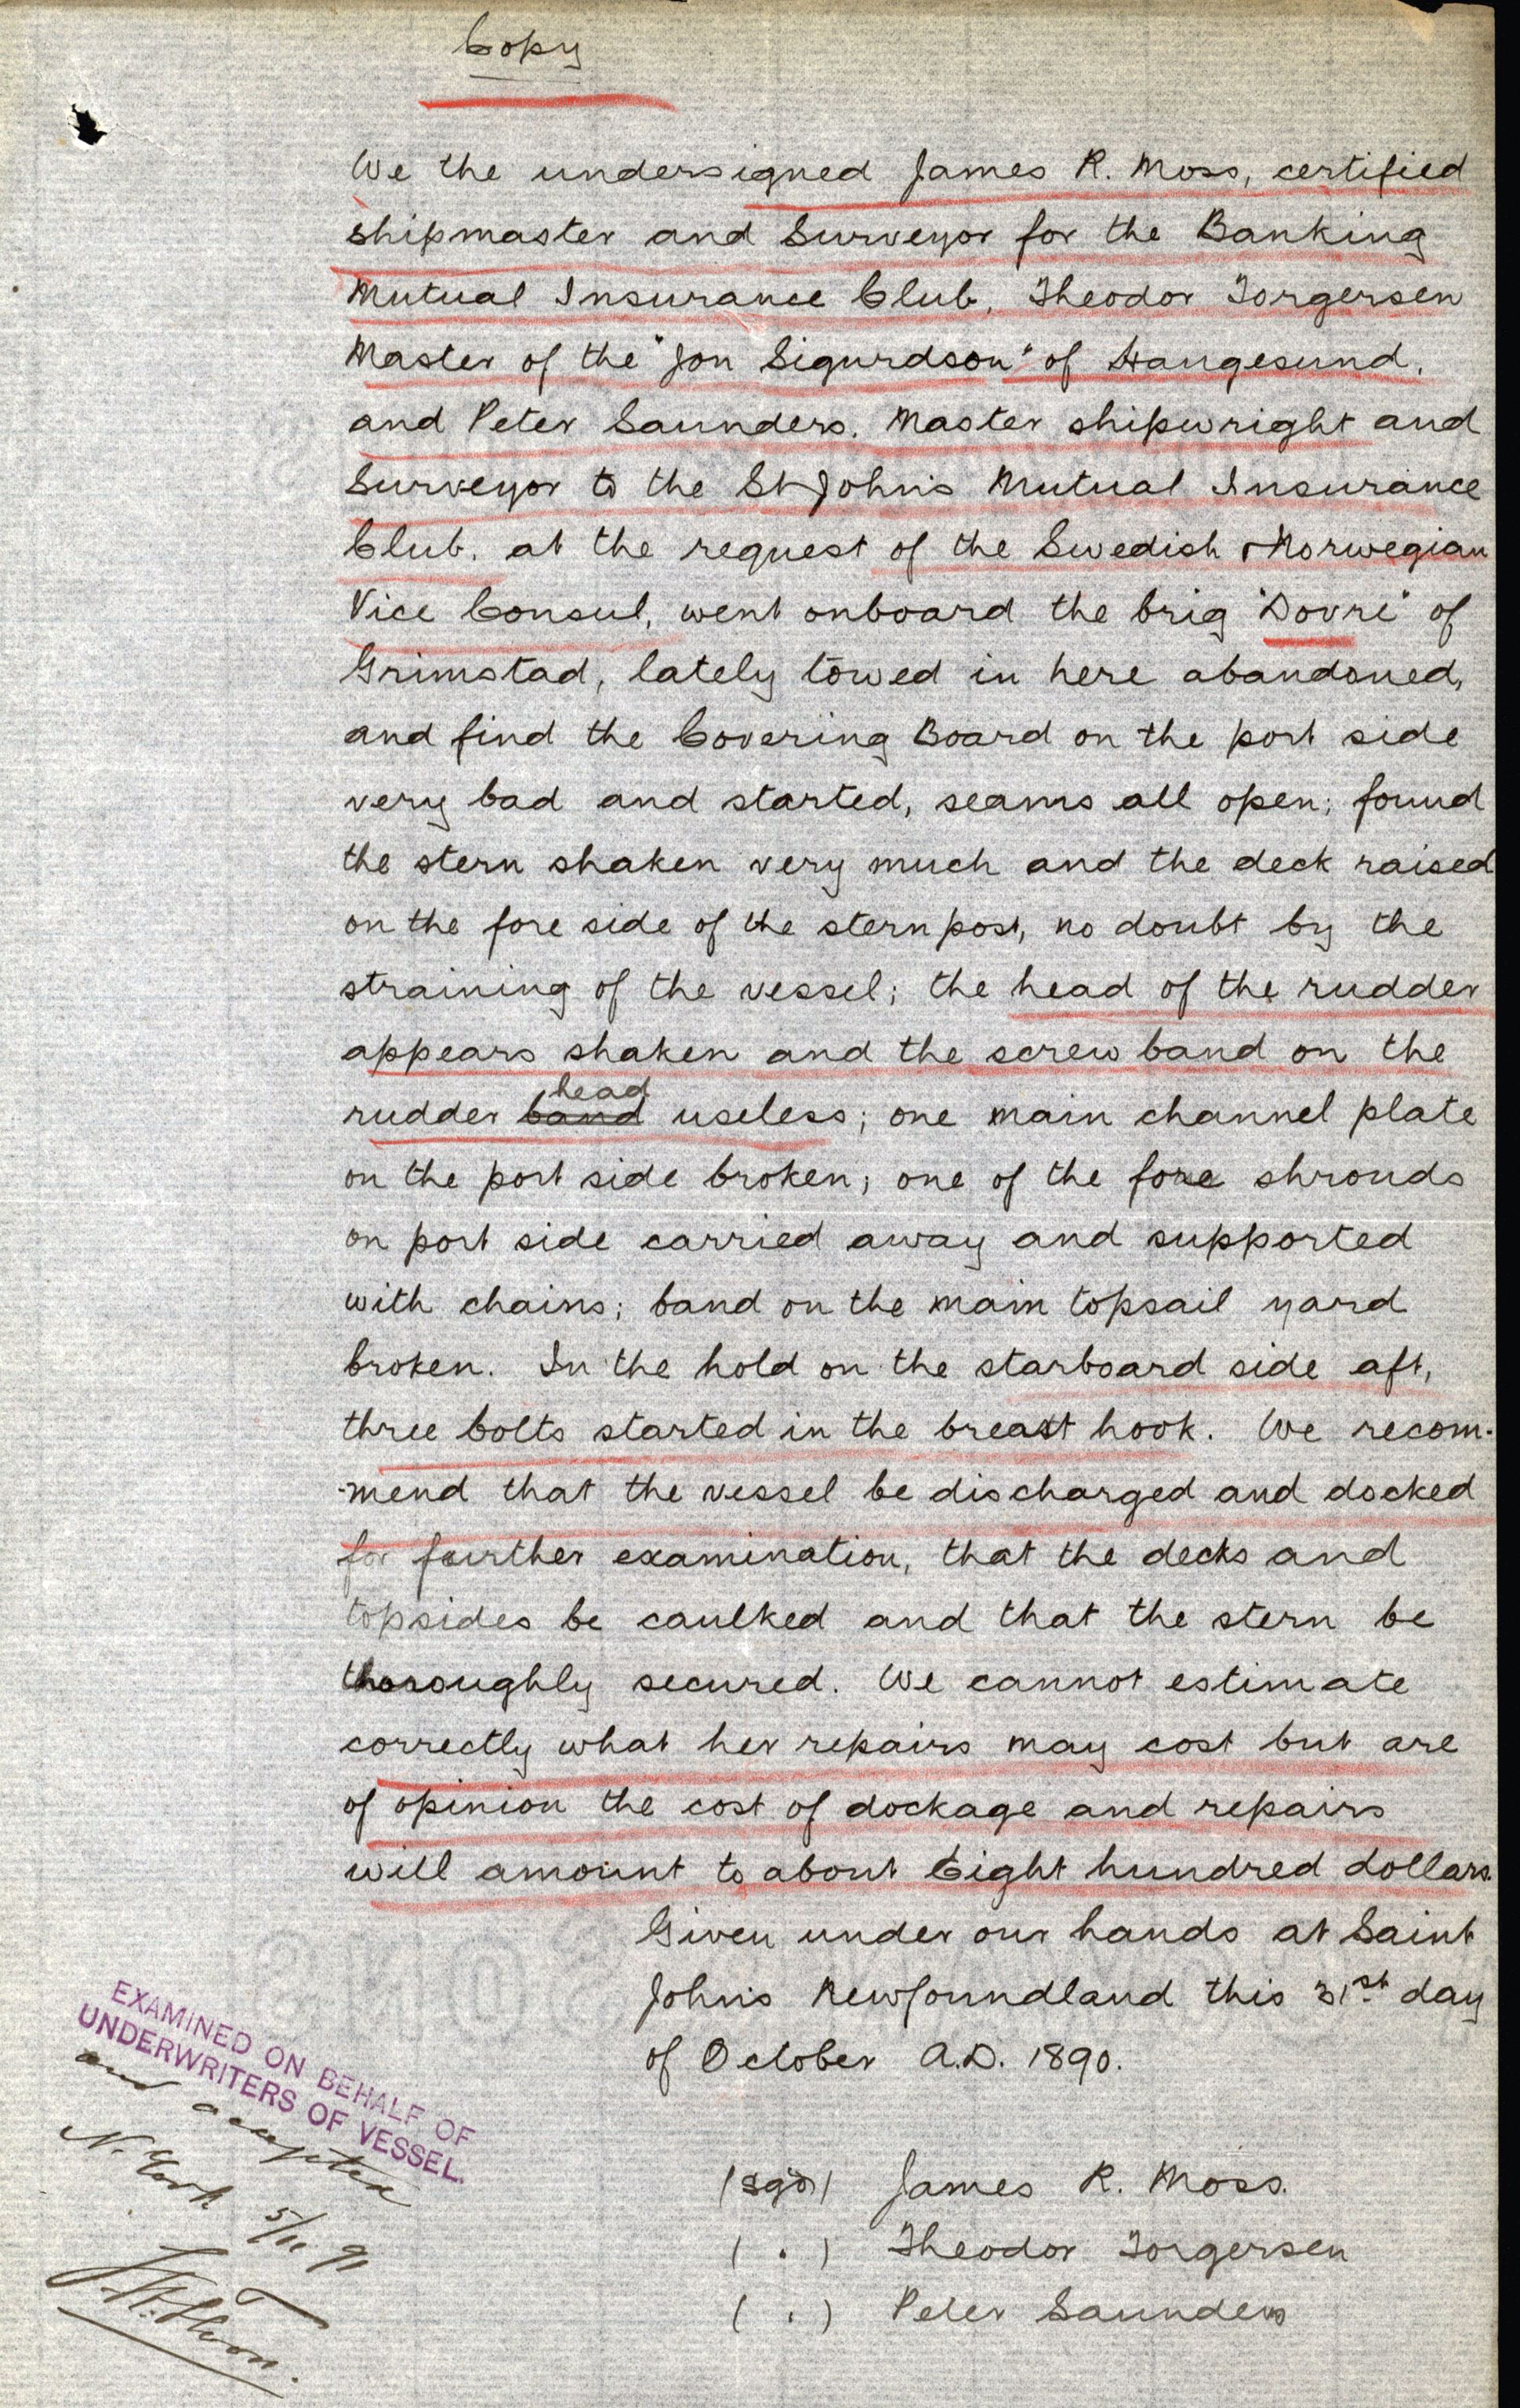 Copy
We the undersigned James R. Moss, certified
shipmaster and Surveyor for the Banking
Mutual Insurance Club, Theodor Torgersen
Master of the "Jon Sigurdson" of Haugesund,
and Peter Saunders, Master shipwright and
Surveyor to the St John's Mutual Insurance
Club, at the request of the Swedish & Norwegian
Vice Consul, went onboard the brig "Dovre" of
Grimstad, lately towed in here abandoned,
and find the Covering Board on the port side
very bad and started, seams all open; found
the stern shaken very much and the deck raised
on the fore side of the sternpost, no doubt by the
straining of the vessel; the head of the rudder
appears shaken and the screw band on the
rudder band head useless; one main channel plate
on the port side broken; one of the fore shrouds
on port side carried away and supported
with chains; band on the main topsail yard
broken. In the hold on the starboard side aft,
three bolts started in the breast hook. We recom-
-mend that the vessel be discharged and docked
for further examination, that the decks and
topsides be caulked and that the stern be
thoroughly secured. We cannot estimate
correctly what her repairs may cost but are
of opinion the cost of dockage and repairs
will amount to about Eight hundred dollars.
Given under our hands at Saint
John's Newfoundland this 31st day
of October A.D. 1890.
(sgd) James R. Moss.
( . ) Theodor Torgersen
( . ) Peter Saunders
EXAMINED ON BEHALF OF
UNDERWRITERS OF VESSEL.
and accepted
N. York 5/11 91